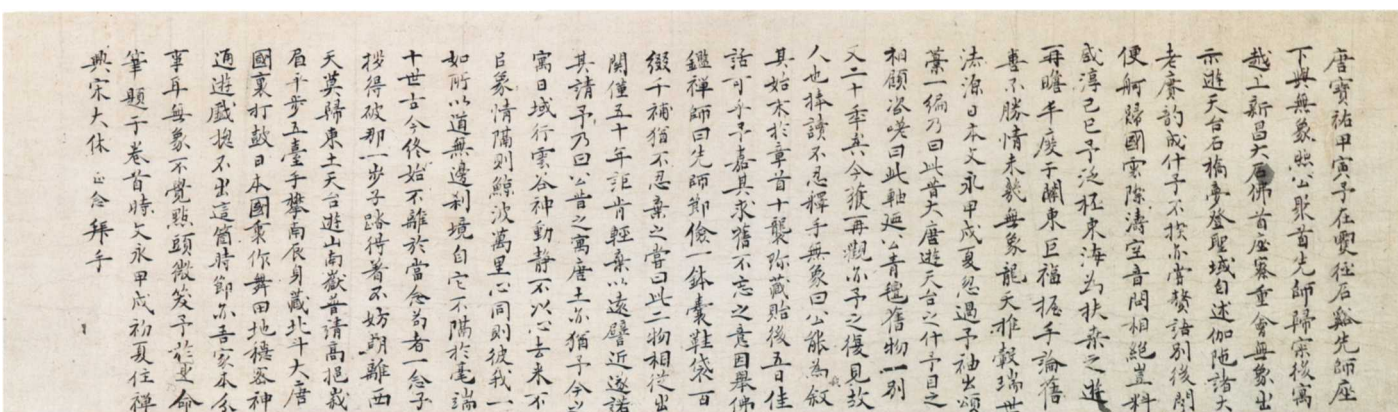 唐寶祐甲寅予在霅徑石谿先師座
下與無象照公聚首先師歸寂後寓
越上新昌大石佛首座寮重會無象出
示遊天台石橋夢登聖域自述伽陀諸大
老賡韵成什予不揆亦嘗贅語別後閴
便舸歸國雲際濤空音問相絕豈料
咸淳己巳予泛杯東海為扶桑之遊
再瞻半度于關東巨福握手論舊
喜不勝情未幾無象龍天推轂瑞世
法源日本文永甲戌夏忽過予袖出頌
藁一編乃曰此昔大唐遊天台之什予目之
相顧咨嗟曰此軸迺公青氊舊物一別
又二十季矣今獲再觀亦予之復見故
人也捧讀不忍釋手無象曰公能為叙
其始末於章首十襲珍藏貽後五日佳
話可乎予嘉其求舊不忘之意因舉佛
鑑禅師曰先師節儉一鉢囊鞋袋百
綴千補猶不忍棄之嘗曰此二物相從出
関僅五十年詎肯輕棄以遠譬近遂諾
其請予乃曰公昔之寓唐土亦猶予今之
寓日域行雲谷神動静不以心去来不
以象情隔則鯨波萬里心同則彼我一
如所以道無邊刹境自它不隔於毫端
十世古今終始不離於當念苟者一念子
拶得破那一步子踏得著不妨朝離西
天莫歸東土天台遊山南嶽普請高挹峩
眉平步五臺手攀南辰身藏北斗大唐
國裏打鼓日本國裏作舞田地穩密神
通遊戲揔不出這箇時節亦吾家本分
事耳無象不覺點頭微笑予於是命
筆題于卷首時文永甲戌初夏住禅
興宋大休 正念 拜手